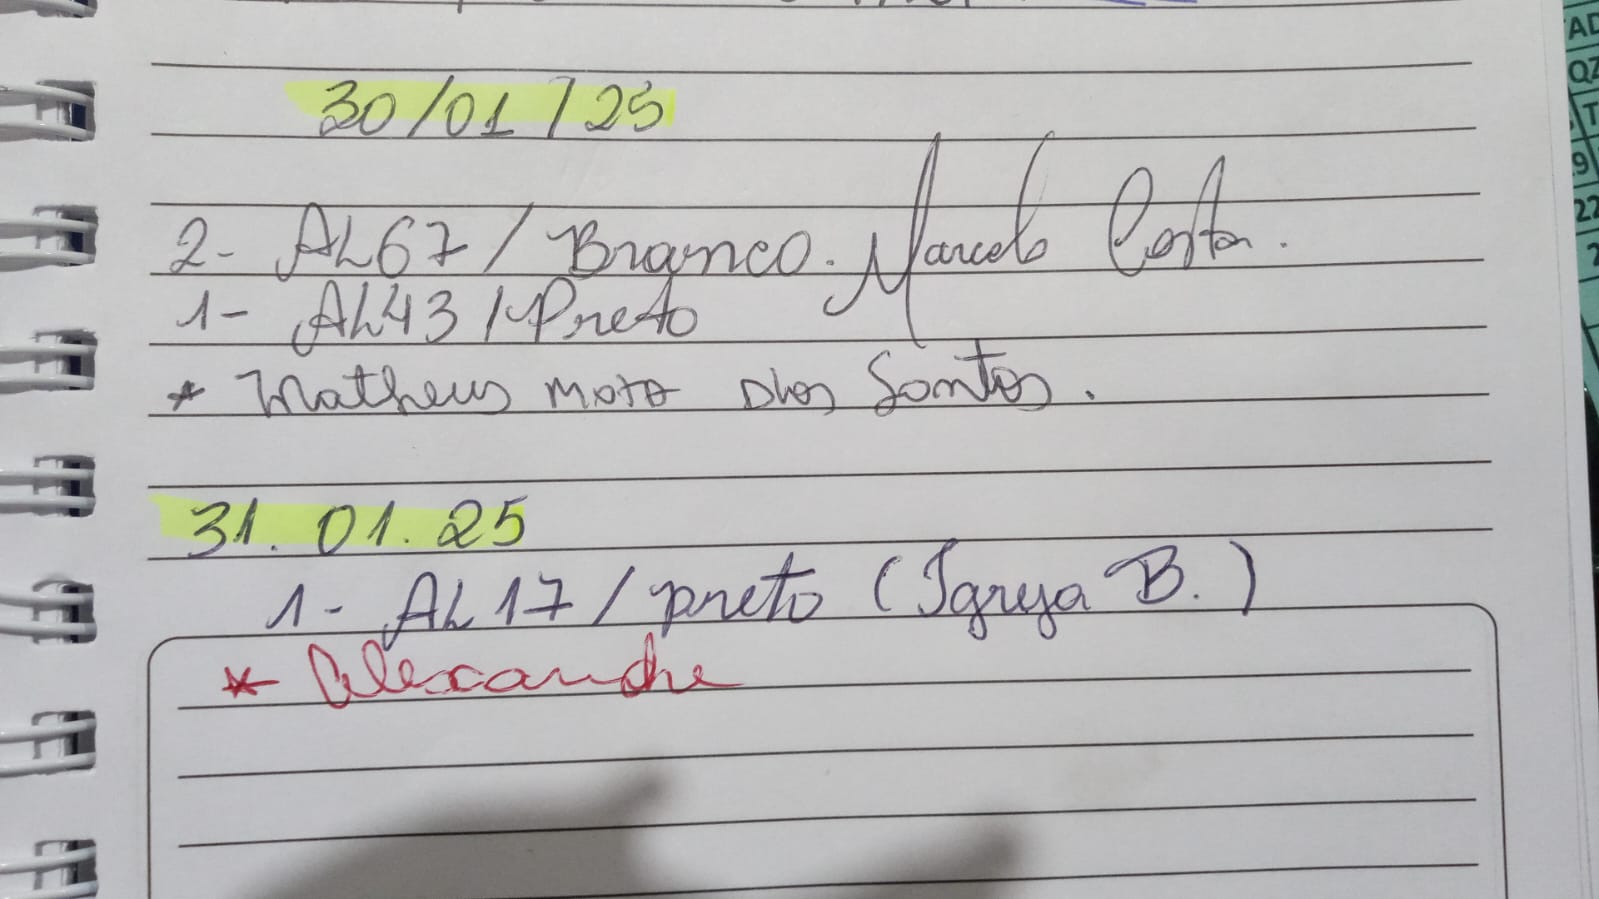 30/01/25
2- AL67/Branco. Marcelo Costa.
1- AL43/Preto
* Matheus mota dos Santos.
31.01.25
1- AL17/preto (Igreja B.)
* Alexandre
AD
QZ
T
9
22
2